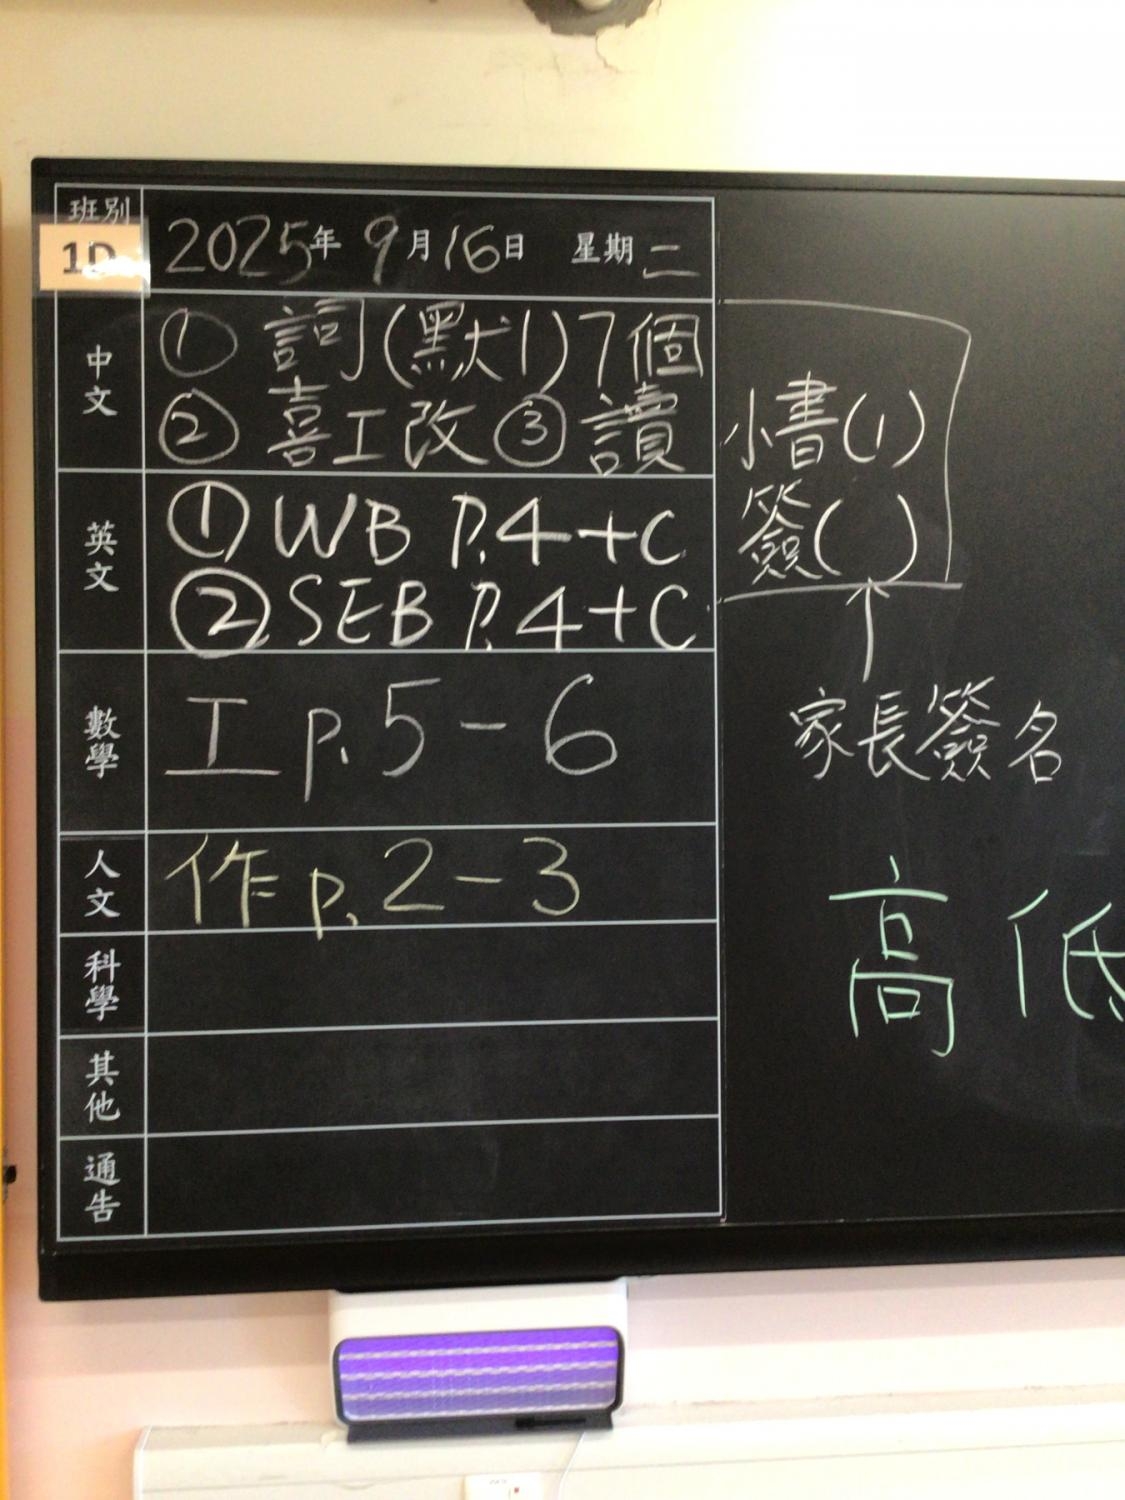 班別
1D
2025年 9月16日 星期二
中文
① 詞(默1)7個
② 喜工改 ③ 讀
英文
① WB P.4+C
② SEB P.4+C
數學
工 p.5-6
人文
作 p.2-3
科學
其他
通告
小書(1)
簽( )
↑
家長簽名
高 低